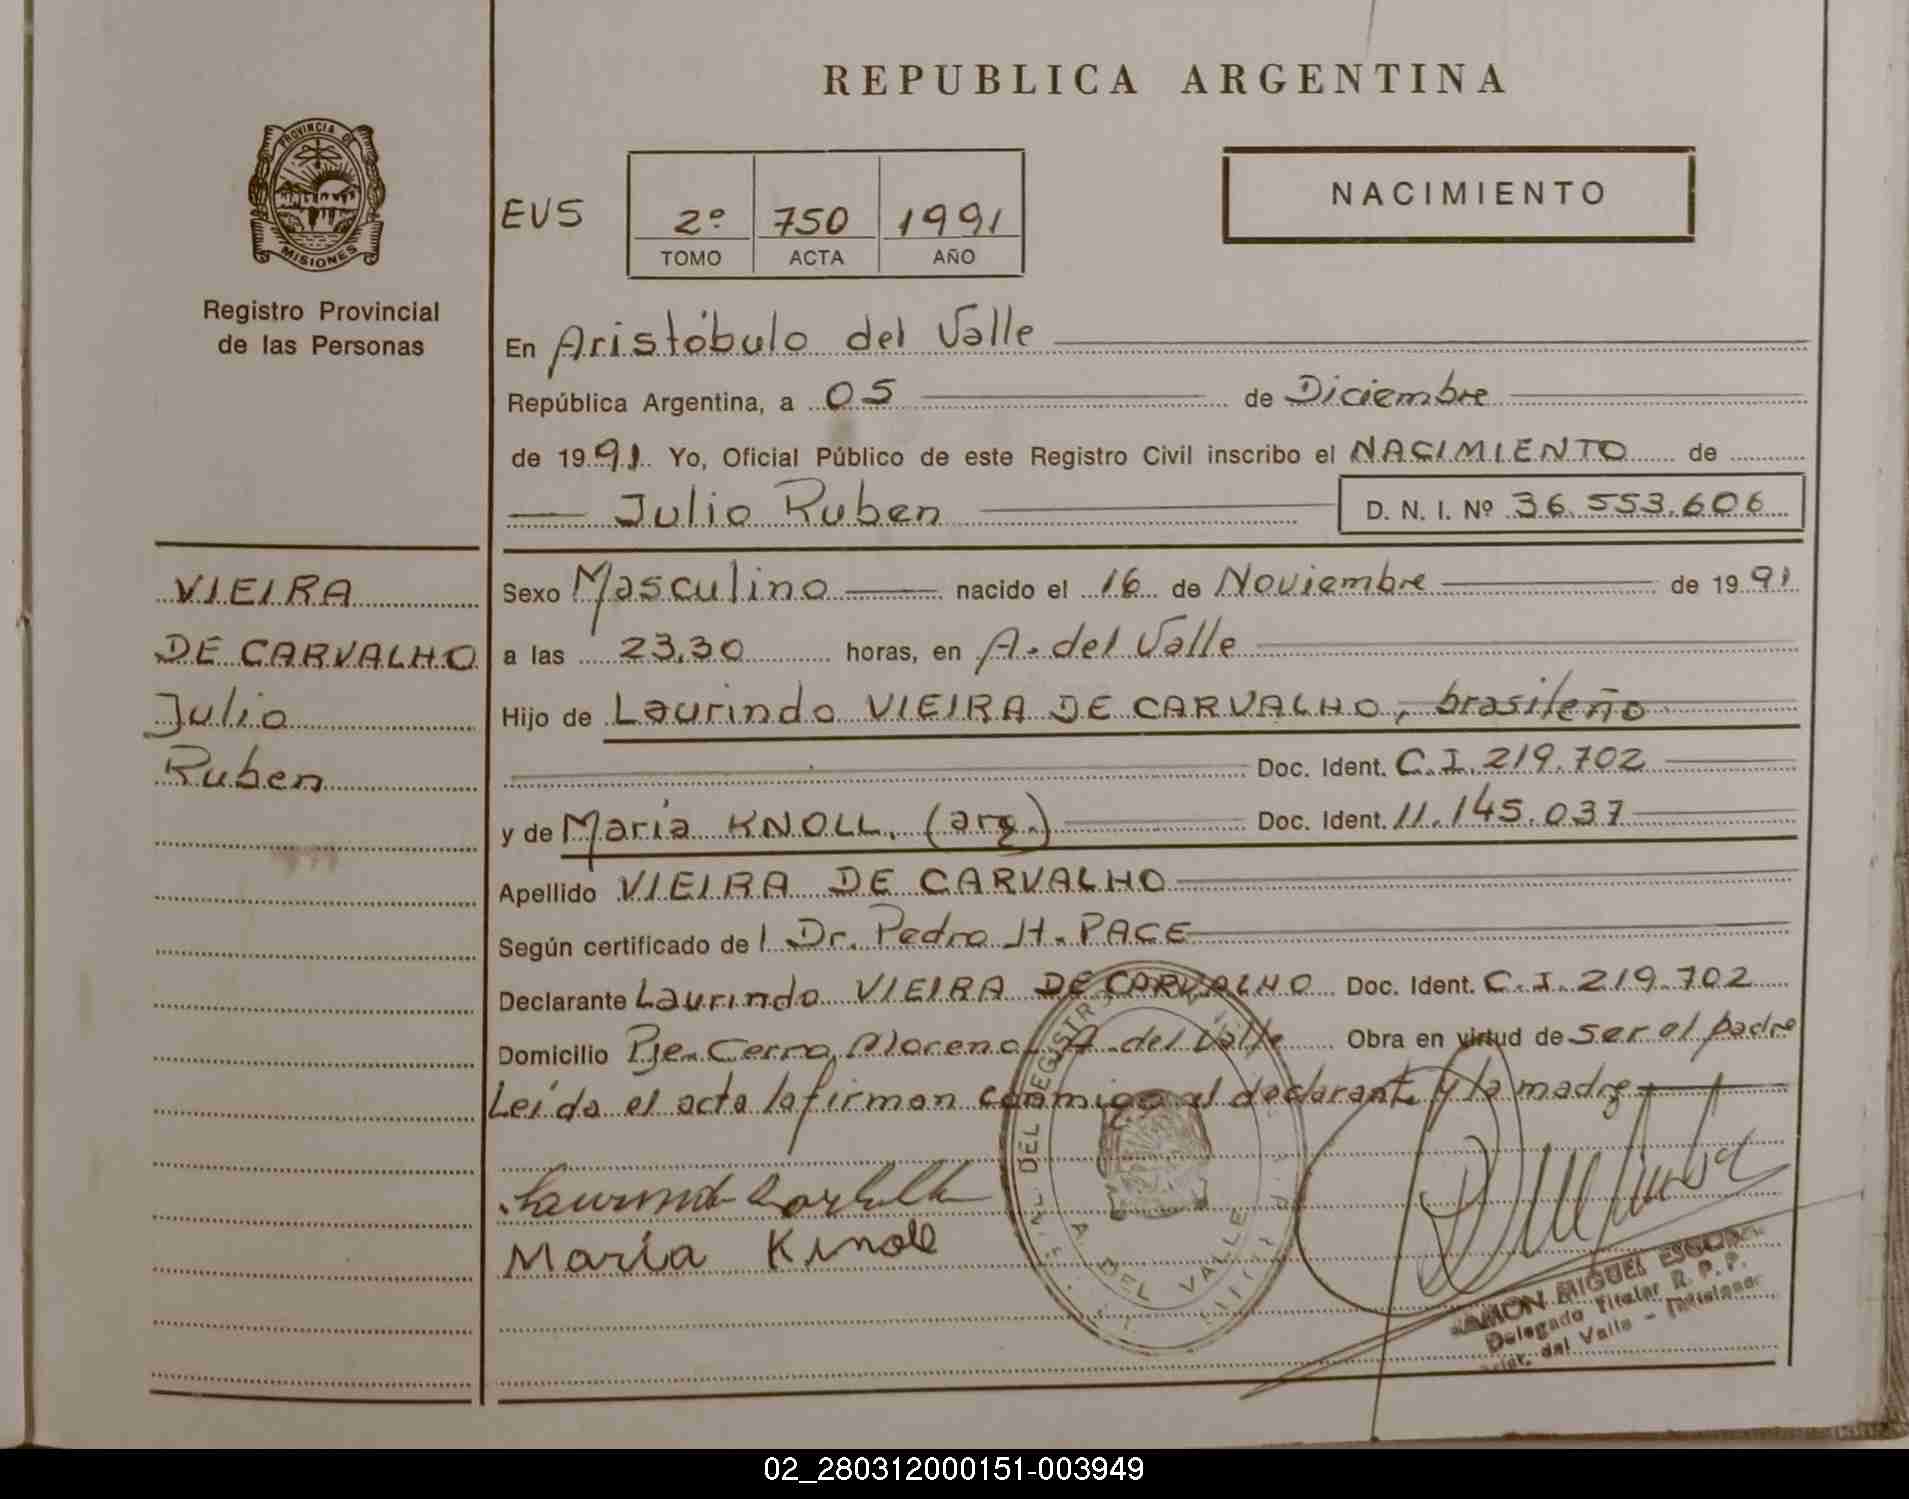 REPUBLICA ARGENTINA
PROVINCIA DE
MISIONES
Registro Provincial
de las Personas
EVS
2º 750 1991
TOMO ACTA AÑO
NACIMIENTO
En Aristóbulo del Valle
República Argentina, a 05 de Diciembre
de 1991. Yo, Oficial Público de este Registro Civil inscribo el NACIMIENTO de
Julio Ruben D. N. I. Nº 36.553.606
VIEIRA
DE CARVALHO
Julio
Ruben
Sexo Masculino nacido el 16 de Noviembre de 1991
a las 23.30 horas, en A. del Valle
Hijo de Laurindo VIEIRA DE CARVALHO, brasileño
Doc. Ident. C.I. 219.702
y de Maria KNOLL. (arg.) Doc. Ident. 11.145.037
Apellido VIEIRA DE CARVALHO
Según certificado del Dr. Pedro H. PACE
Declarante Laurindo VIEIRA DE CARVALHO Doc. Ident. C.I. 219.702
Domicilio Pje. Cerro Moreno, A. del Valle Obra en virtud de ser el padre
Leída el acta la firman conmigo el declarante y la madre
DEL REGISTR
A. DEL VALLE
María Knoll
RAMON MIGUEL
Delegado Titular R. P. P.
del Valle - Misiones
02_280312000151-003949